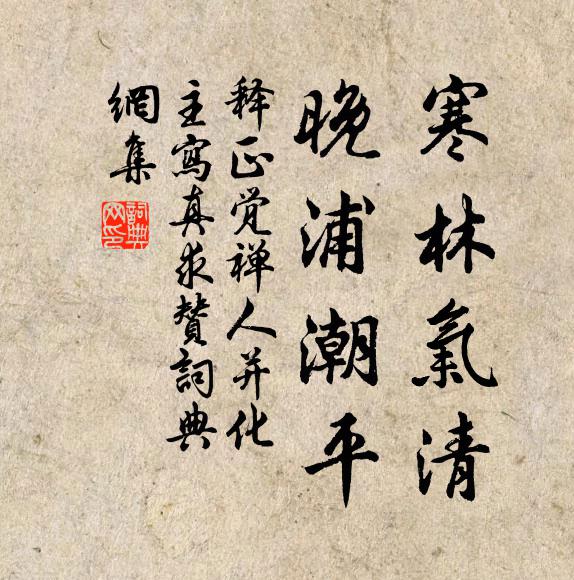 寒林氣清
晚浦潮平
释正觉禅人并化
主寫真求賛詞典
網集
詞典
网印